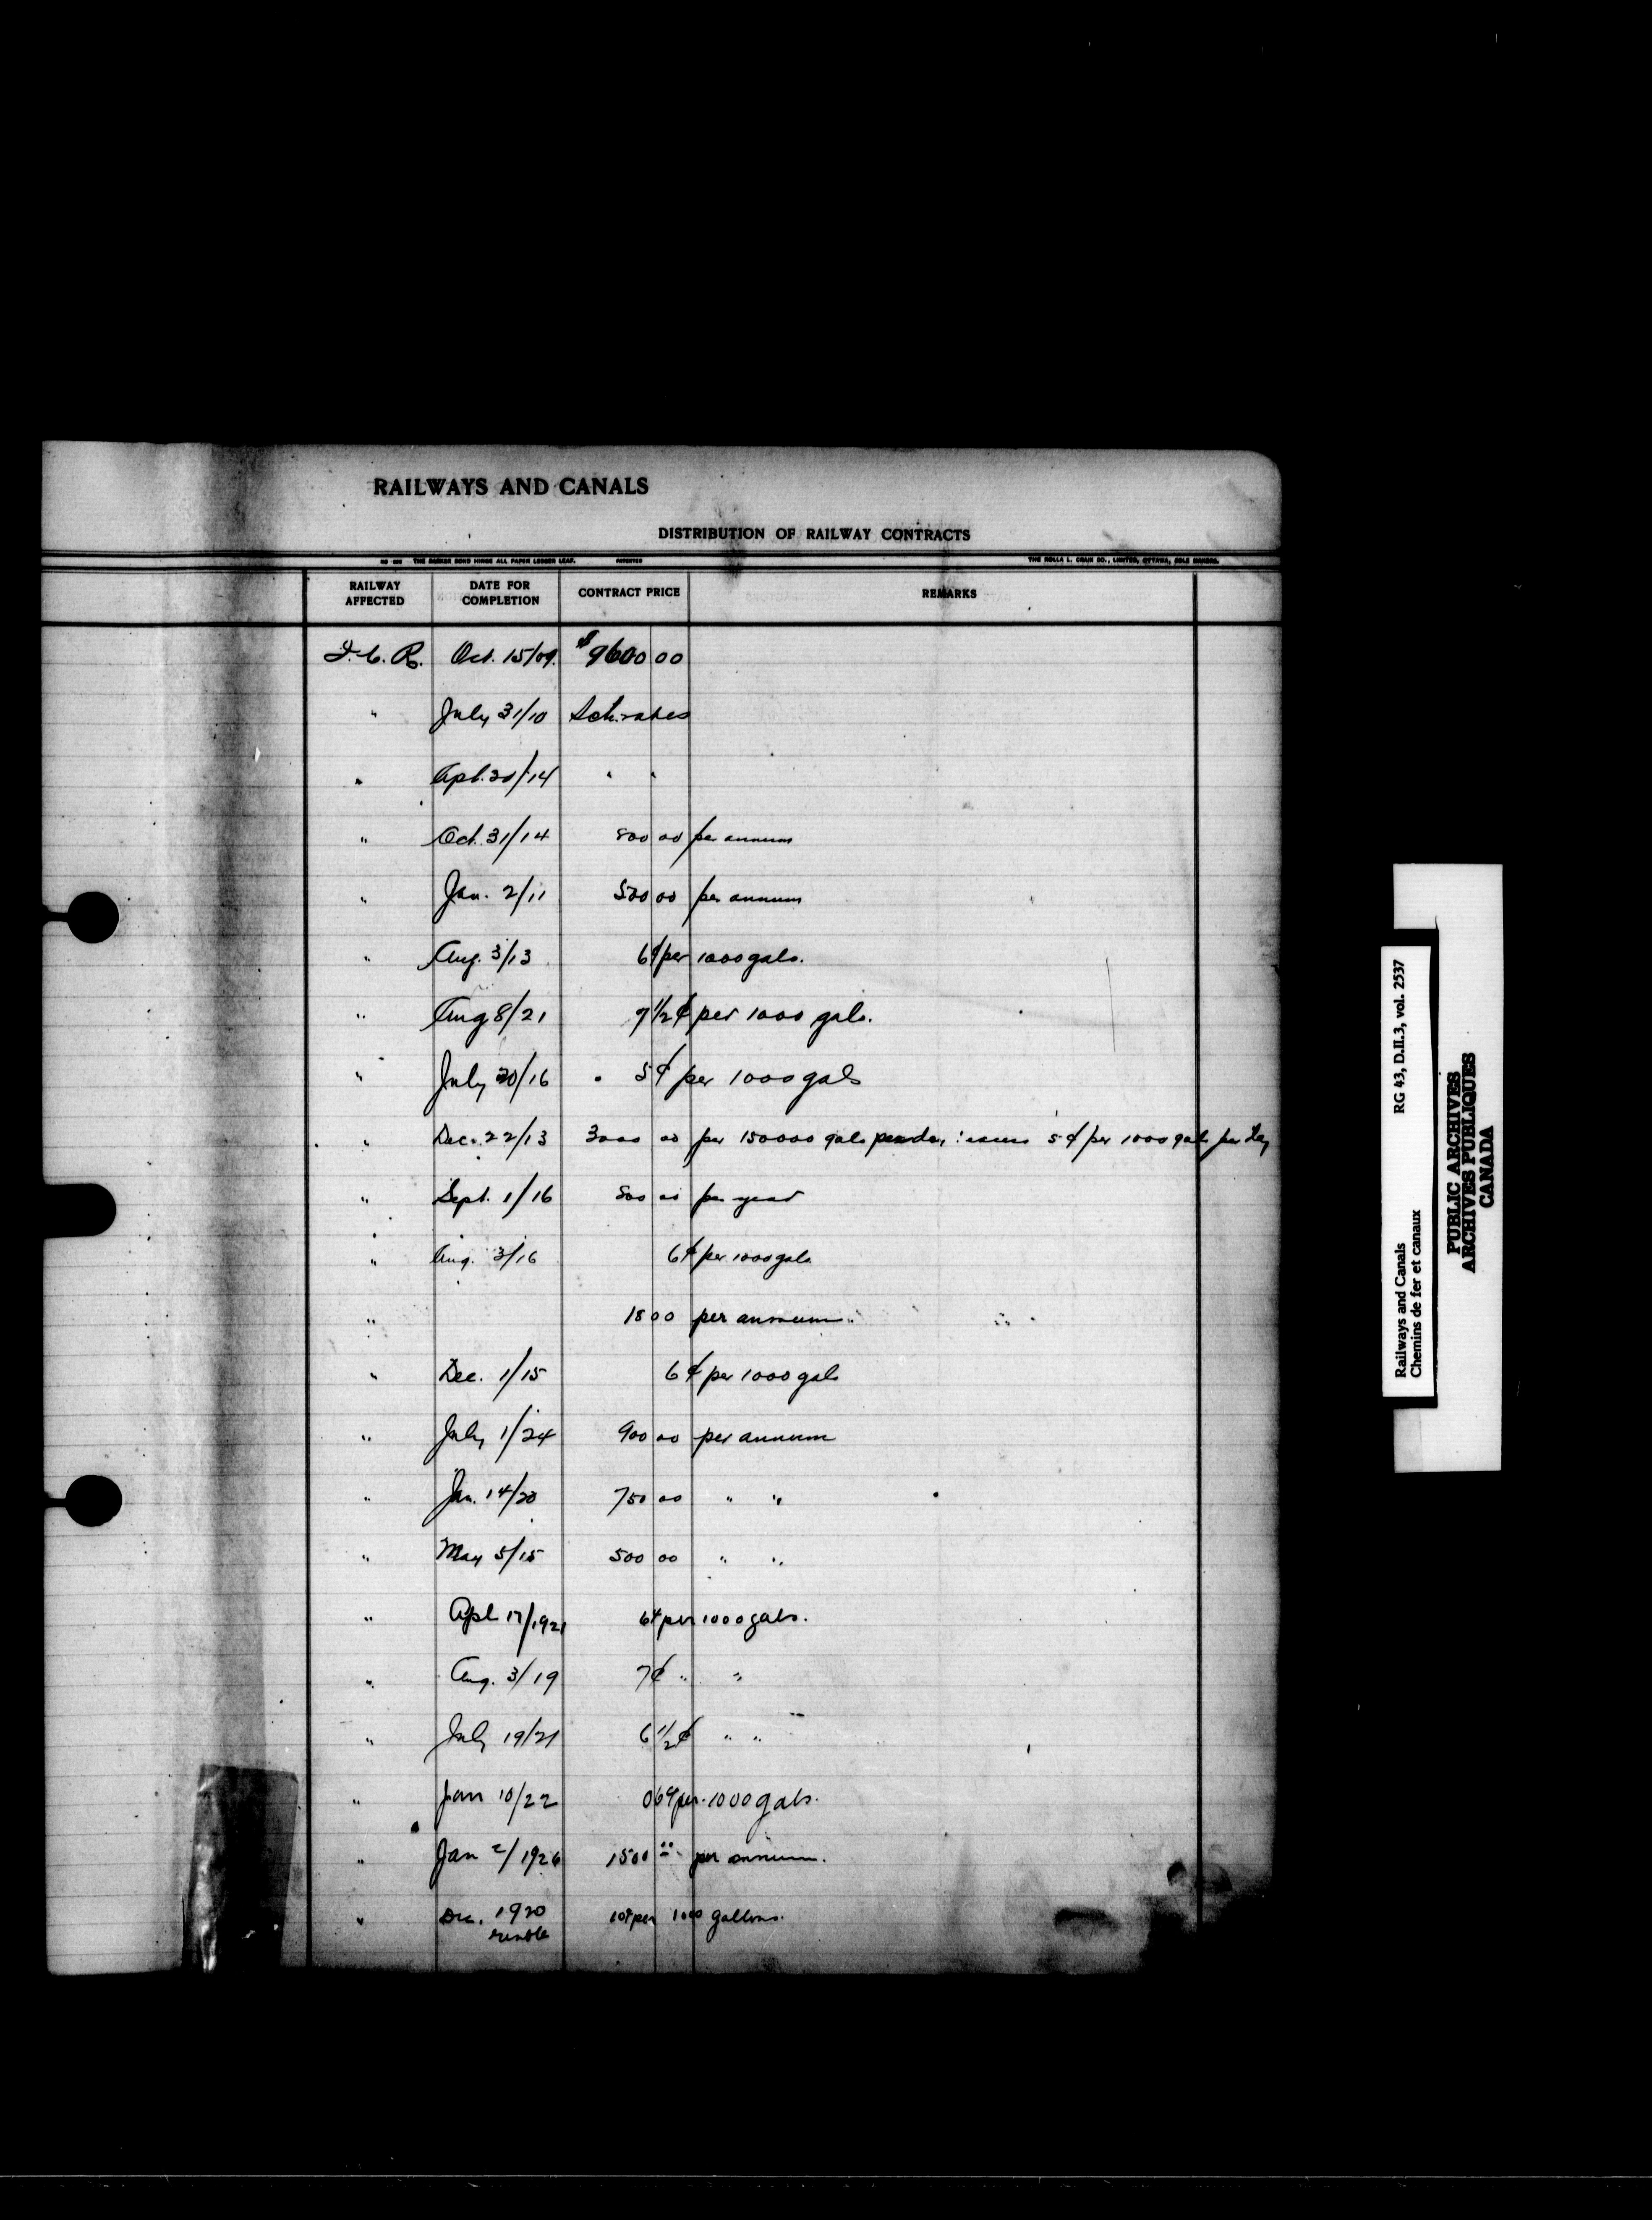 RAILWAYS AND CANALS
DISTRIBUTION OF RAILWAY CONTRACTS
THE BARKER BOND HINGE ALL PAPER LEDGER LEAF. PATENTED THE ROLLA L. CRAIN CO., LIMITED, OTTAWA, SOLE MAKERS.
RAILWAY AFFECTED DATE FOR COMPLETION CONTRACT PRICE REMARKS
I.C.R. Oct. 15/09. $9600 00
" July 31/10 Sch. rates
" Apl. 30/14 " "
" Oct. 31/14 800 00 per annum
" Jan. 2/11 520 00 per annum
" Aug. 3/13 6¢ per 1000 gals.
" Aug 8/21 7 1/2 ¢ per 1000 gals.
" July 20/16 5¢ per 1000 gals
" Dec. 22/13 3000 00 per 150000 gals per day: excess 5¢ per 1000 gals per day
" Sept. 1/16 800 00 per year
" Aug. 3/16 6¢ per 1000 gals.
" 1800 per annum.
" Dec. 1/15 6¢ per 1000 gals
" July 1/24 900 00 per annum
" Jan. 14/20 750 00 " "
" May 5/15 500 00 " "
" Apl 17/1921 6¢ per 1000 gals.
" Aug. 3/19 7¢ " "
" July 19/21 6 1/2 ¢ " "
" Jan 10/22 06¢ per 1000 gals.
" Jan 2/1926 1500 00 per annum.
" Dec. 1920 10¢ per 1000 gallons.
Railways and Canals RG 43, D.II.3, vol. 2537
Chemins de fer et canaux
PUBLIC ARCHIVES
ARCHIVES PUBLIQUES
CANADA